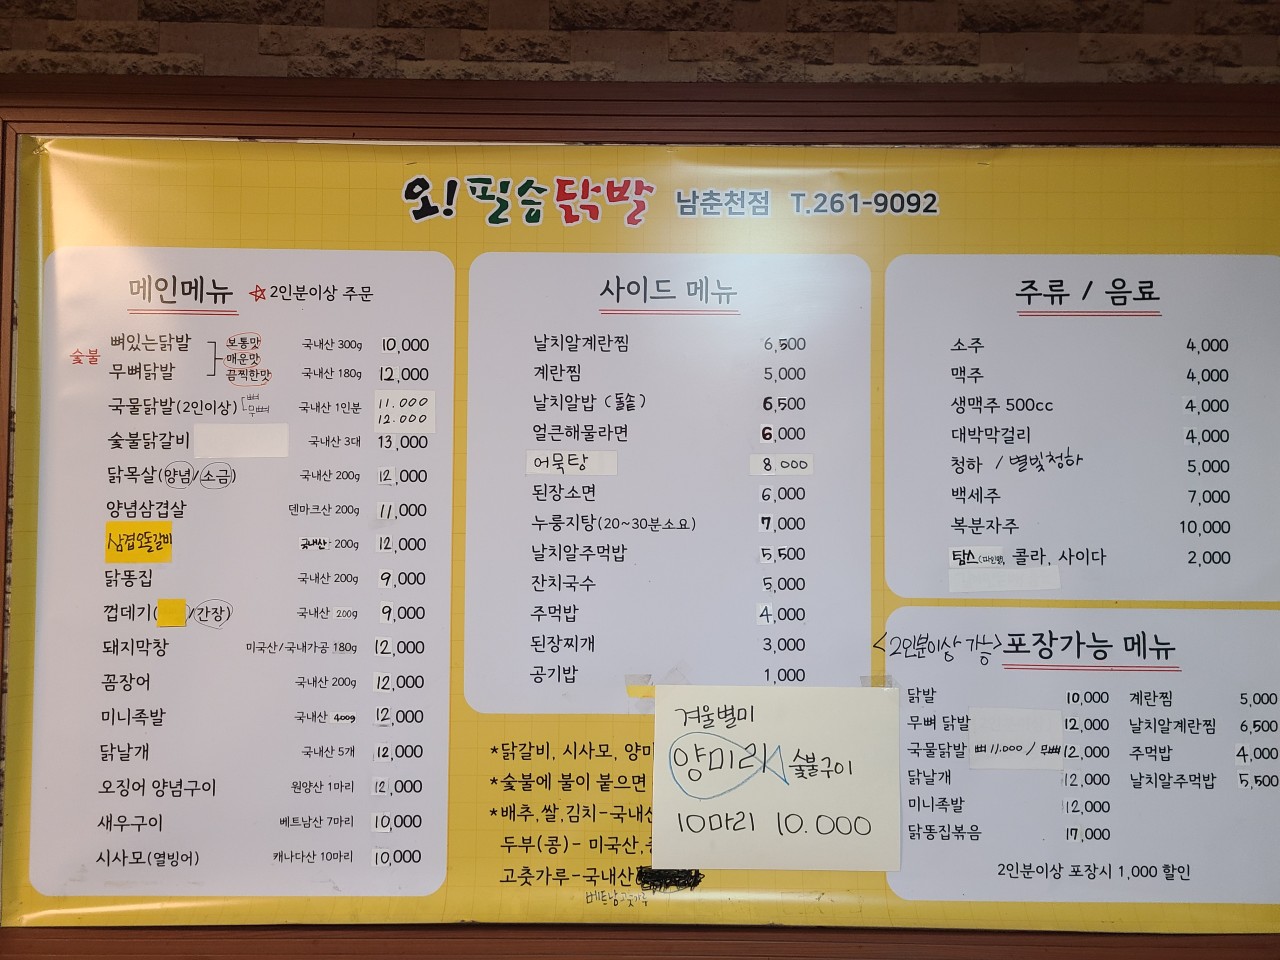 오! 필승 닭발 남춘천점 T.261-9092
메인메뉴 ☆2인분이상 주문
숯불
뼈있는닭발 보통맛 국내산 300g 10,000
매운맛
무뼈닭발 끔찍한맛 국내산 180g 12,000
국물닭발(2인이상) 뼈 무뼈 국내산 1인분 11.000 12.000
숯불닭갈비 국내산 3대 13,000
닭목살(양념/소금) 국내산 200g 12,000
양념삼겹살 덴마크산 200g 11,000
삼겹오돌갈비 국내산 200g 12,000
닭똥집 국내산 200g 9,000
껍데기( /간장) 국내산 200g 9,000
돼지막창 미국산/국내가공 180g 12,000
꼼장어 국내산 200g 12,000
미니족발 국내산 400g 12,000
닭날개 국내산 5개 12,000
오징어 양념구이 원양산 1마리 12,000
새우구이 베트남산 7마리 10,000
시사모(열빙어) 캐나다산 10마리 10,000
사이드 메뉴
날치알계란찜 6,500
계란찜 5,000
날치알밥 (돌솥) 6,500
얼큰해물라면 6,000
어묵탕 8,000
된장소면 6,000
누룽지탕(20~30분소요) 7,000
날치알주먹밥 5,500
잔치국수 5,000
주먹밥 4,000
된장찌개 3,000
공기밥 1,000
*닭갈비, 시사모, 양미
*숯불에 불이 붙으면
*배추,쌀,김치-국내산
두부(콩)- 미국산,
고춧가루-국내산
베트남고춧가루
겨울별미
양미리 숯불구이
10마리 10.000
주류 / 음료
소주 4,000
맥주 4,000
생맥주 500cc 4,000
대박막걸리 4,000
청하 / 별빛청하 5,000
백세주 7,000
복분자주 10,000
탐스(파인애플), 콜라, 사이다 2,000
<2인분이상 가능> 포장가능 메뉴
닭발 10,000 계란찜 5,000
무뼈 닭발 12,000 날치알계란찜 6,500
국물닭발 뼈 11.000 / 무뼈 12,000 주먹밥 4,000
닭날개 12,000 날치알주먹밥 5,500
미니족발 12,000
닭똥집볶음 17,000
2인분이상 포장시 1,000 할인